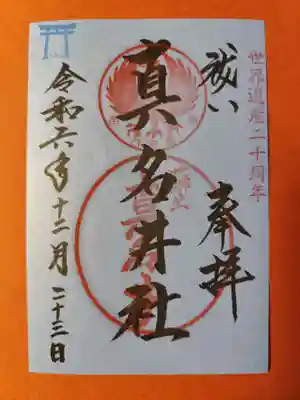 世界遺産二十周年
祓い
奉拝
真名井社
令和六年十二月二十三日